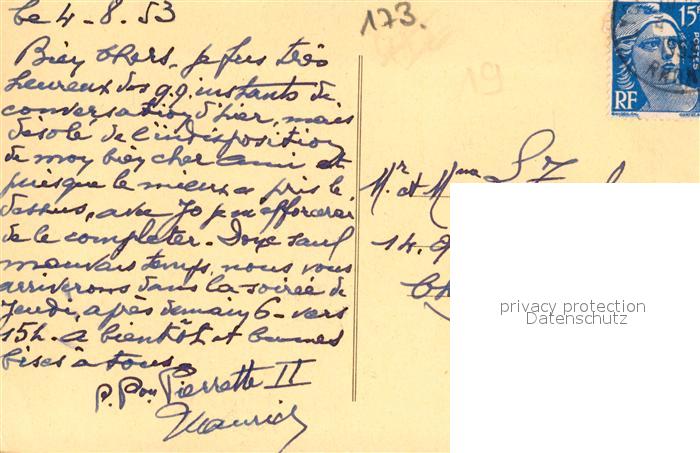 le 4-8.53
Bien chers, je fus très
heureux des q.q. instants de
conversation d'hier, mais
désolé de l'indisposition
de mon bien cher ami et
puisque le mieux a pris le
dessus, avec Jo je m'efforcerai
de le completer. Donc sauf
mauvais temps, nous vous
arriverons dans la soirée de
Jeudi, après demain 6 - vers
15h. a bientôt et bonnes
bises à tous.
P. Pon Pierrette II
Maurice
173.
19
15F
POSTES
RF
Mr et Mme
14.
privacy protection
Datenschutz